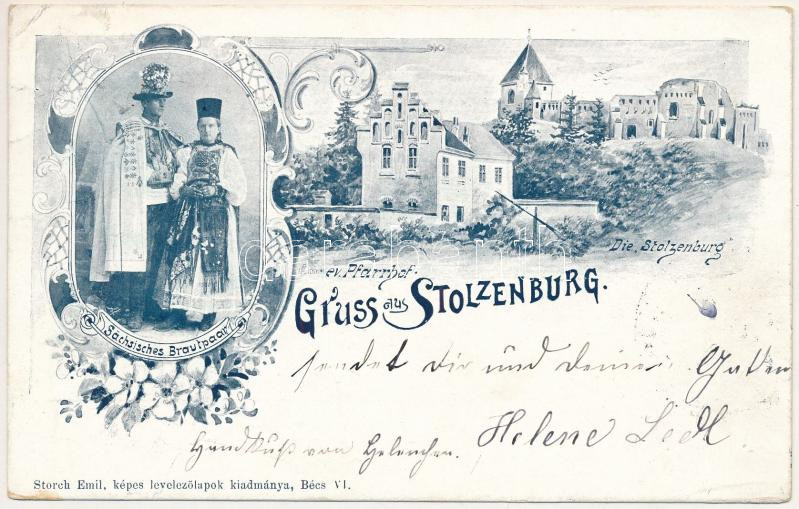 Die „Stolzenburg“
ev. Pfarrhof.
Gruss aus STOLZENBURG.
Sächsisches Brautpaar
sendet Dir und Deinen Gatten
Helene Ledl
Handkuß von Helenchen.
Storch Emil, képes levelezőlapok kiadmánya, Bécs VI.